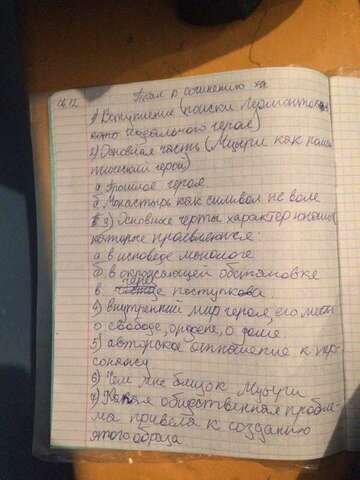 06.12
План к сочинению
1) Вступление (поиски Лермонтова
идеального героя)
2) Основная часть (Мцыри как роман
тический герой)
а Прошлое героя
б Монастырь как символ не воли
3) Основные черты характера юноши
которые проявленися:
а в исповеде монологе
б в окружающей обстановке
в через поступкова.
4) внутренний мир героя, его меты
о свободе, о родене, о доме
5) авторское отношение к пер-
сонажу
6) Чем мне близок Мцыри
7) Какая общественная пробле-
ма привела к созданию
этого образа